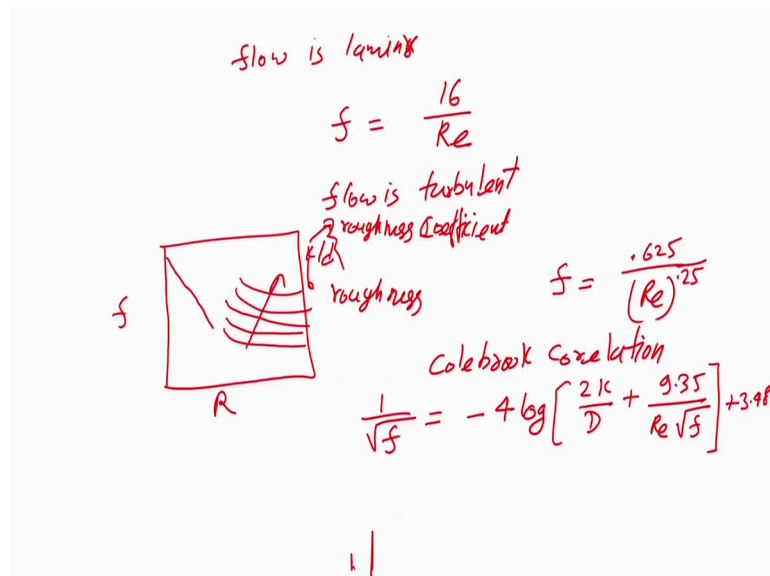 flow is laminar
f = 16 / Re
flow is turbulent
roughness Coefficient
k/d
roughness
f
R
f = .625 / (Re)^.25
Colebrook Corelation
1/√f = - 4 log [ 2K/D + 9.35 / Re √f ] + 3.48